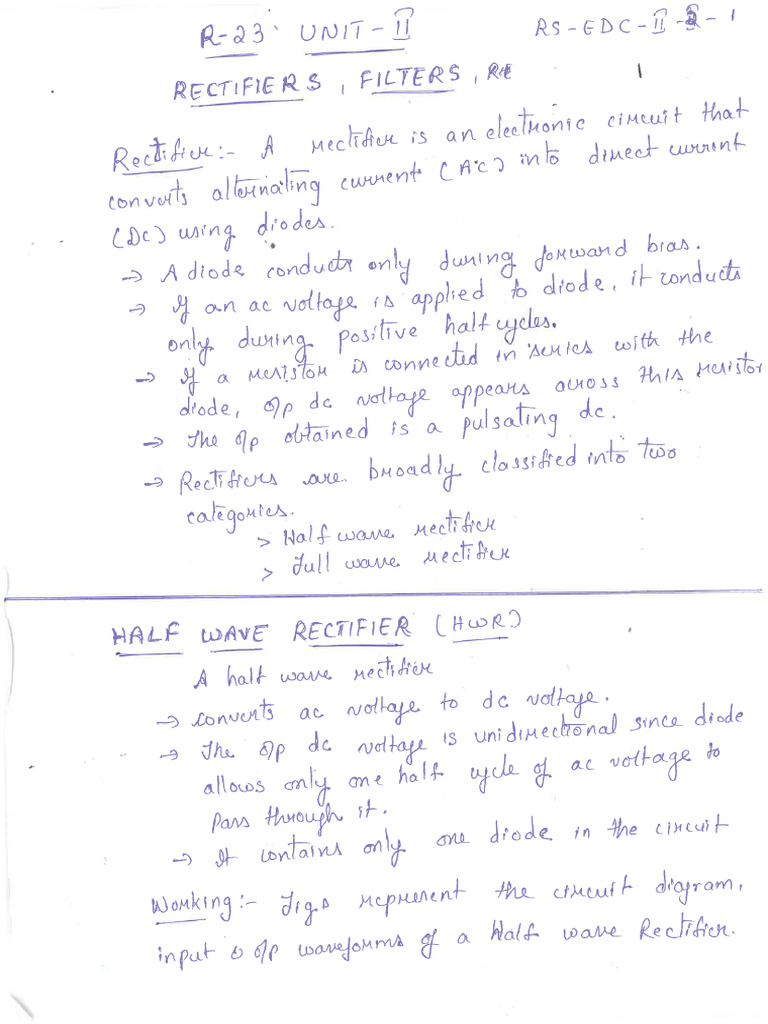 R-23 UNIT-II RS-EDC-II-2-1
RECTIFIERS, FILTERS, 1
Rectifier:- A rectifier is an electronic circuit that
converts alternating current (AC) into direct current
(DC) using diodes.
→ A diode conducts only during forward bias.
→ If an ac voltage is applied to diode, it conducts
only during positive half cycles.
→ If a resistor is connected in series with the
diode, o/p dc voltage appears across this resistor
→ The o/p obtained is a pulsating dc.
→ Rectifiers are broadly classified into two
categories.
> Half wave rectifier
> Full wave rectifier
HALF WAVE RECTIFIER (HWR)
A half wave rectifier
→ converts ac voltage to dc voltage.
→ The o/p dc voltage is unidirectional since diode
allows only one half cycle of ac voltage to
pass through it.
→ It contains only one diode in the circuit
Working:- Figs represent the circuit diagram,
input & o/p waveforms of a Half wave Rectifier.